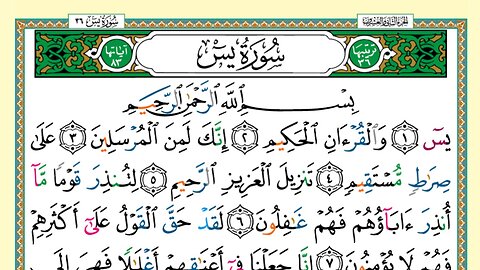 سُورَةُ يسٓ ٣٦
الجزء الثاني والعشرون
آياتها ٨٣
سُورَةُ يسٓ
ترتيبها ٣٦
بِسْمِ اللَّهِ الرَّحْمَٰنِ الرَّحِيمِ
يسٓ ۝١ وَالْقُرْءَانِ الْحَكِيمِ ۝٢ إِنَّكَ لَمِنَ الْمُرْسَلِينَ ۝٣ عَلَىٰ
صِرَٰطٍ مُّسْتَقِيمٍ ۝٤ تَنزِيلَ الْعَزِيزِ الرَّحِيمِ ۝٥ لِتُنذِرَ قَوْمًا مَّآ
أُنذِرَ ءَابَآؤُهُمْ فَهُمْ غَٰفِلُونَ ۝٦ لَقَدْ حَقَّ الْقَوْلُ عَلَىٰٓ أَكْثَرِهِمْ
فَهُمْ لَا يُؤْمِنُونَ ۝٧ إِنَّا جَعَلْنَا فِىٓ أَعْنَٰقِهِمْ أَغْلَٰلًا فَهِىَ إِلَى